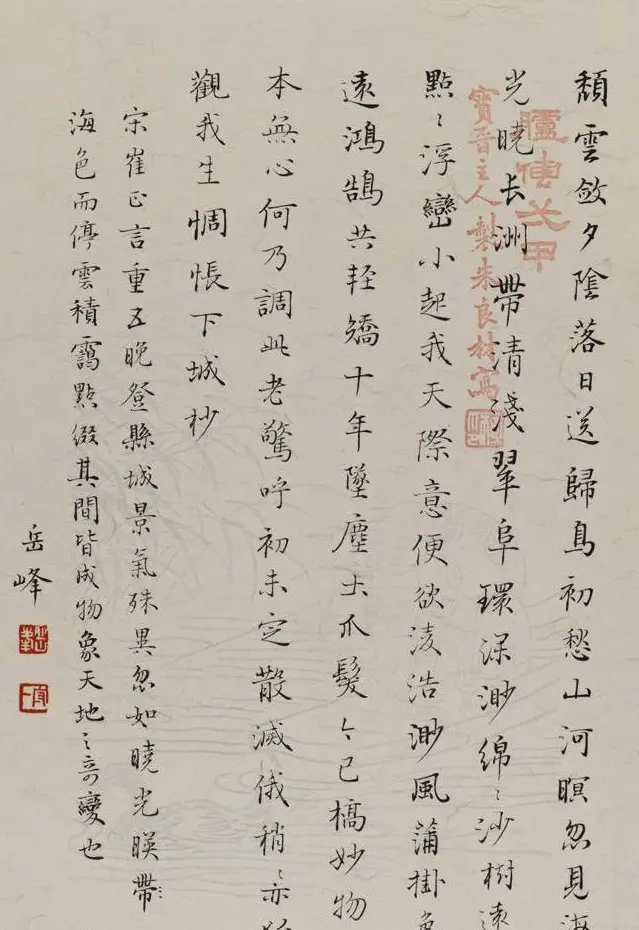 頽雲斂夕陰落日送歸鳥初愁山河暝忽見海
光曉长洲帶清淺翠阜環深渺綿〻沙樹遠
點〻浮巒小起我天際意便欲淩浩渺風蒲掛
遠鴻鵠共輕矯十年墜塵土爪髮今已槁妙物
本無心何乃調此老驚呼初未定散滅俄稍〻亦
觀我生惆悵下城杪
宋崔正言重五晚登縣城景氣殊異忽如曉光暎帶
海色而停雲積靄點綴其間皆成物象天地之奇變也
岳峰
臚傳六甲
寶晉主人製朱良材寫